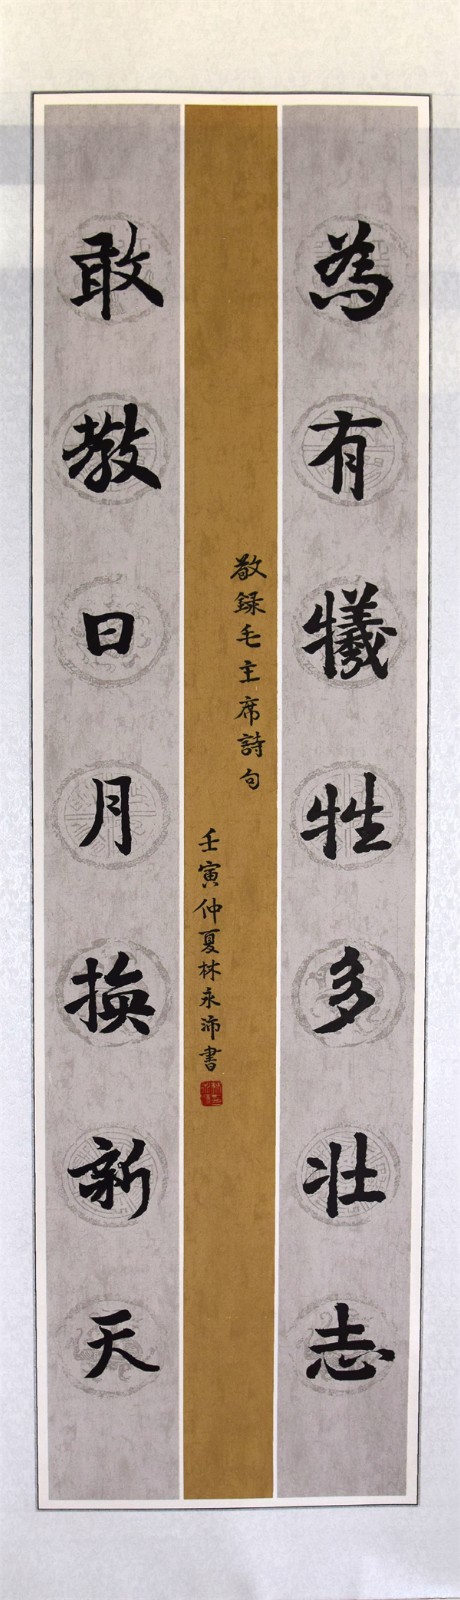 為有犧牲多壯志
敢教日月換新天
敬録毛主席詩句
壬寅仲夏林永沛書